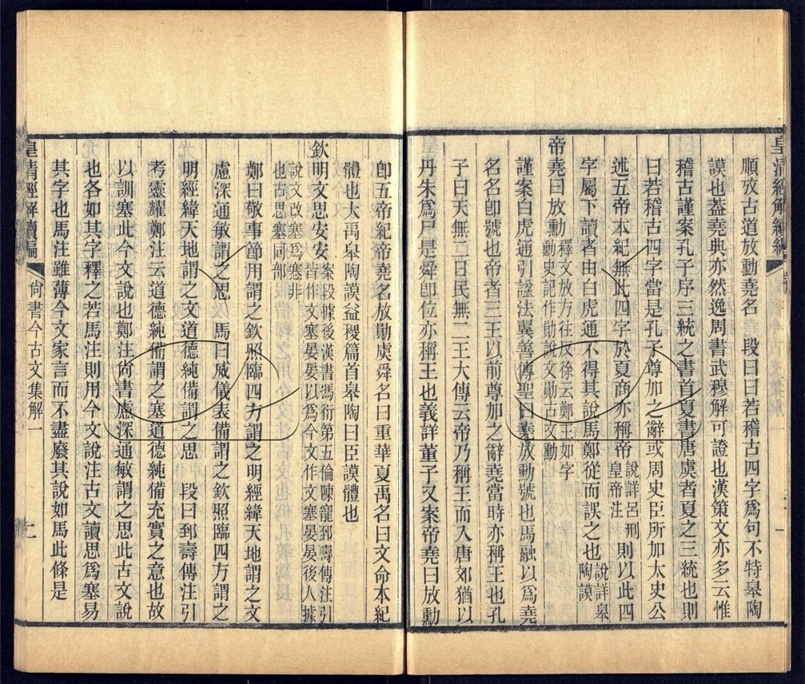 皇清經解續編
順攷古道放勳堯名　段曰曰若稽古四字爲句不特皋陶
謨也葢堯典亦然逸周書武穆解可證也漢策文亦多云惟
稽古謹案孔子序三統之書首夏書唐虞者夏之三統也則
曰若稽古四字當是孔子尊加之辭或周史臣所加太史公
述五帝本紀無此四字於夏商亦稱帝說詳呂刑皇帝注則以此四
字屬下讀者由白虎通不得其說馬鄭從而誤之也說詳皋陶謨
帝堯曰放勳釋文放方往反徐云鄭王如字勳史記作勛說文勛古文勳
謹案白虎通引謚法翼善傳聖曰堯放勳號也馬融以爲堯
名名卽號也帝者三王以前尊加之辭堯當時亦稱王也孔
子曰天無二日民無二王大傳云帝乃稱王而入唐郊猶以
丹朱爲尸是舜卽位亦稱王也義詳董子又案帝堯曰放勳
卽五帝紀帝堯名放勛虞舜名曰重華夏禹名曰文命本紀
體也大禹皋陶謨益稷篇首皋陶曰臣謨體也
欽明文思安安案段據後漢書馮衍第五倫陳寵郅壽傳注引皆作文塞晏晏以爲今文作文塞晏晏後人據說文改塞爲寒非也古思塞同部
鄭曰敬事節用謂之欽照臨四方謂之明經緯天地謂之文
慮深通敏謂之思　馬曰威儀表備謂之欽照臨四方謂之
明經緯天地謂之文道德純備謂之思　段曰郅壽傳注引
考靈耀鄭注云道德純備謂之塞道德純備充實之意也故
以訓塞此今文說也鄭注尙書慮深通敏謂之思此古文說
也各如其字釋之若馬注則用今文說注古文讀思爲塞易
其字也馬注雖薄今文家言而不盡廢其說如馬此條是
皇清經解續編　尙書今古文集解一